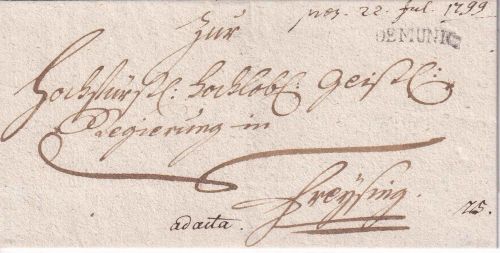 prs. 22. Jul. 1799
DE MUNIC
Zur
Hochfürstl: hochlobl: Geistl:
Regierung in
Freysing.
ad acta.
25.